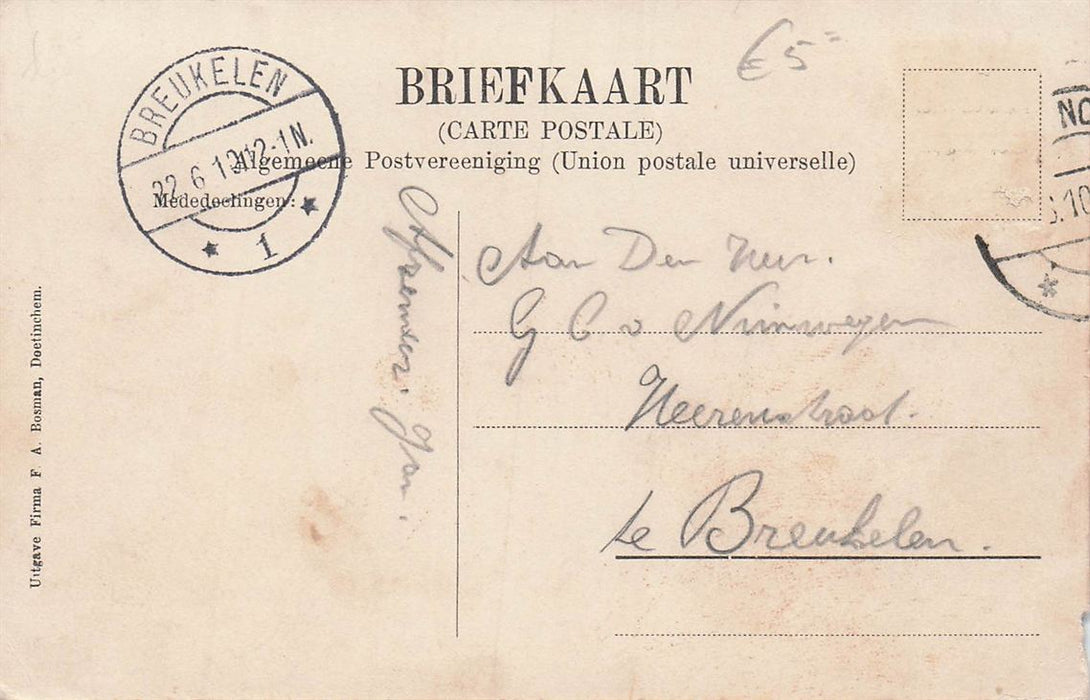 €5=
BRIEFKAART
(CARTE POSTALE)
Algemeene Postvereeniging (Union postale universelle)
Mededeelingen:
BREUKELEN
22 6 10 12-1N.
1
Afzender: Jan.
Aan Den Heer.
G C v Nimwegen
Heerenstraat.
te Breukelen.
Uitgave Firma F. A. Bosman, Doetinchem.